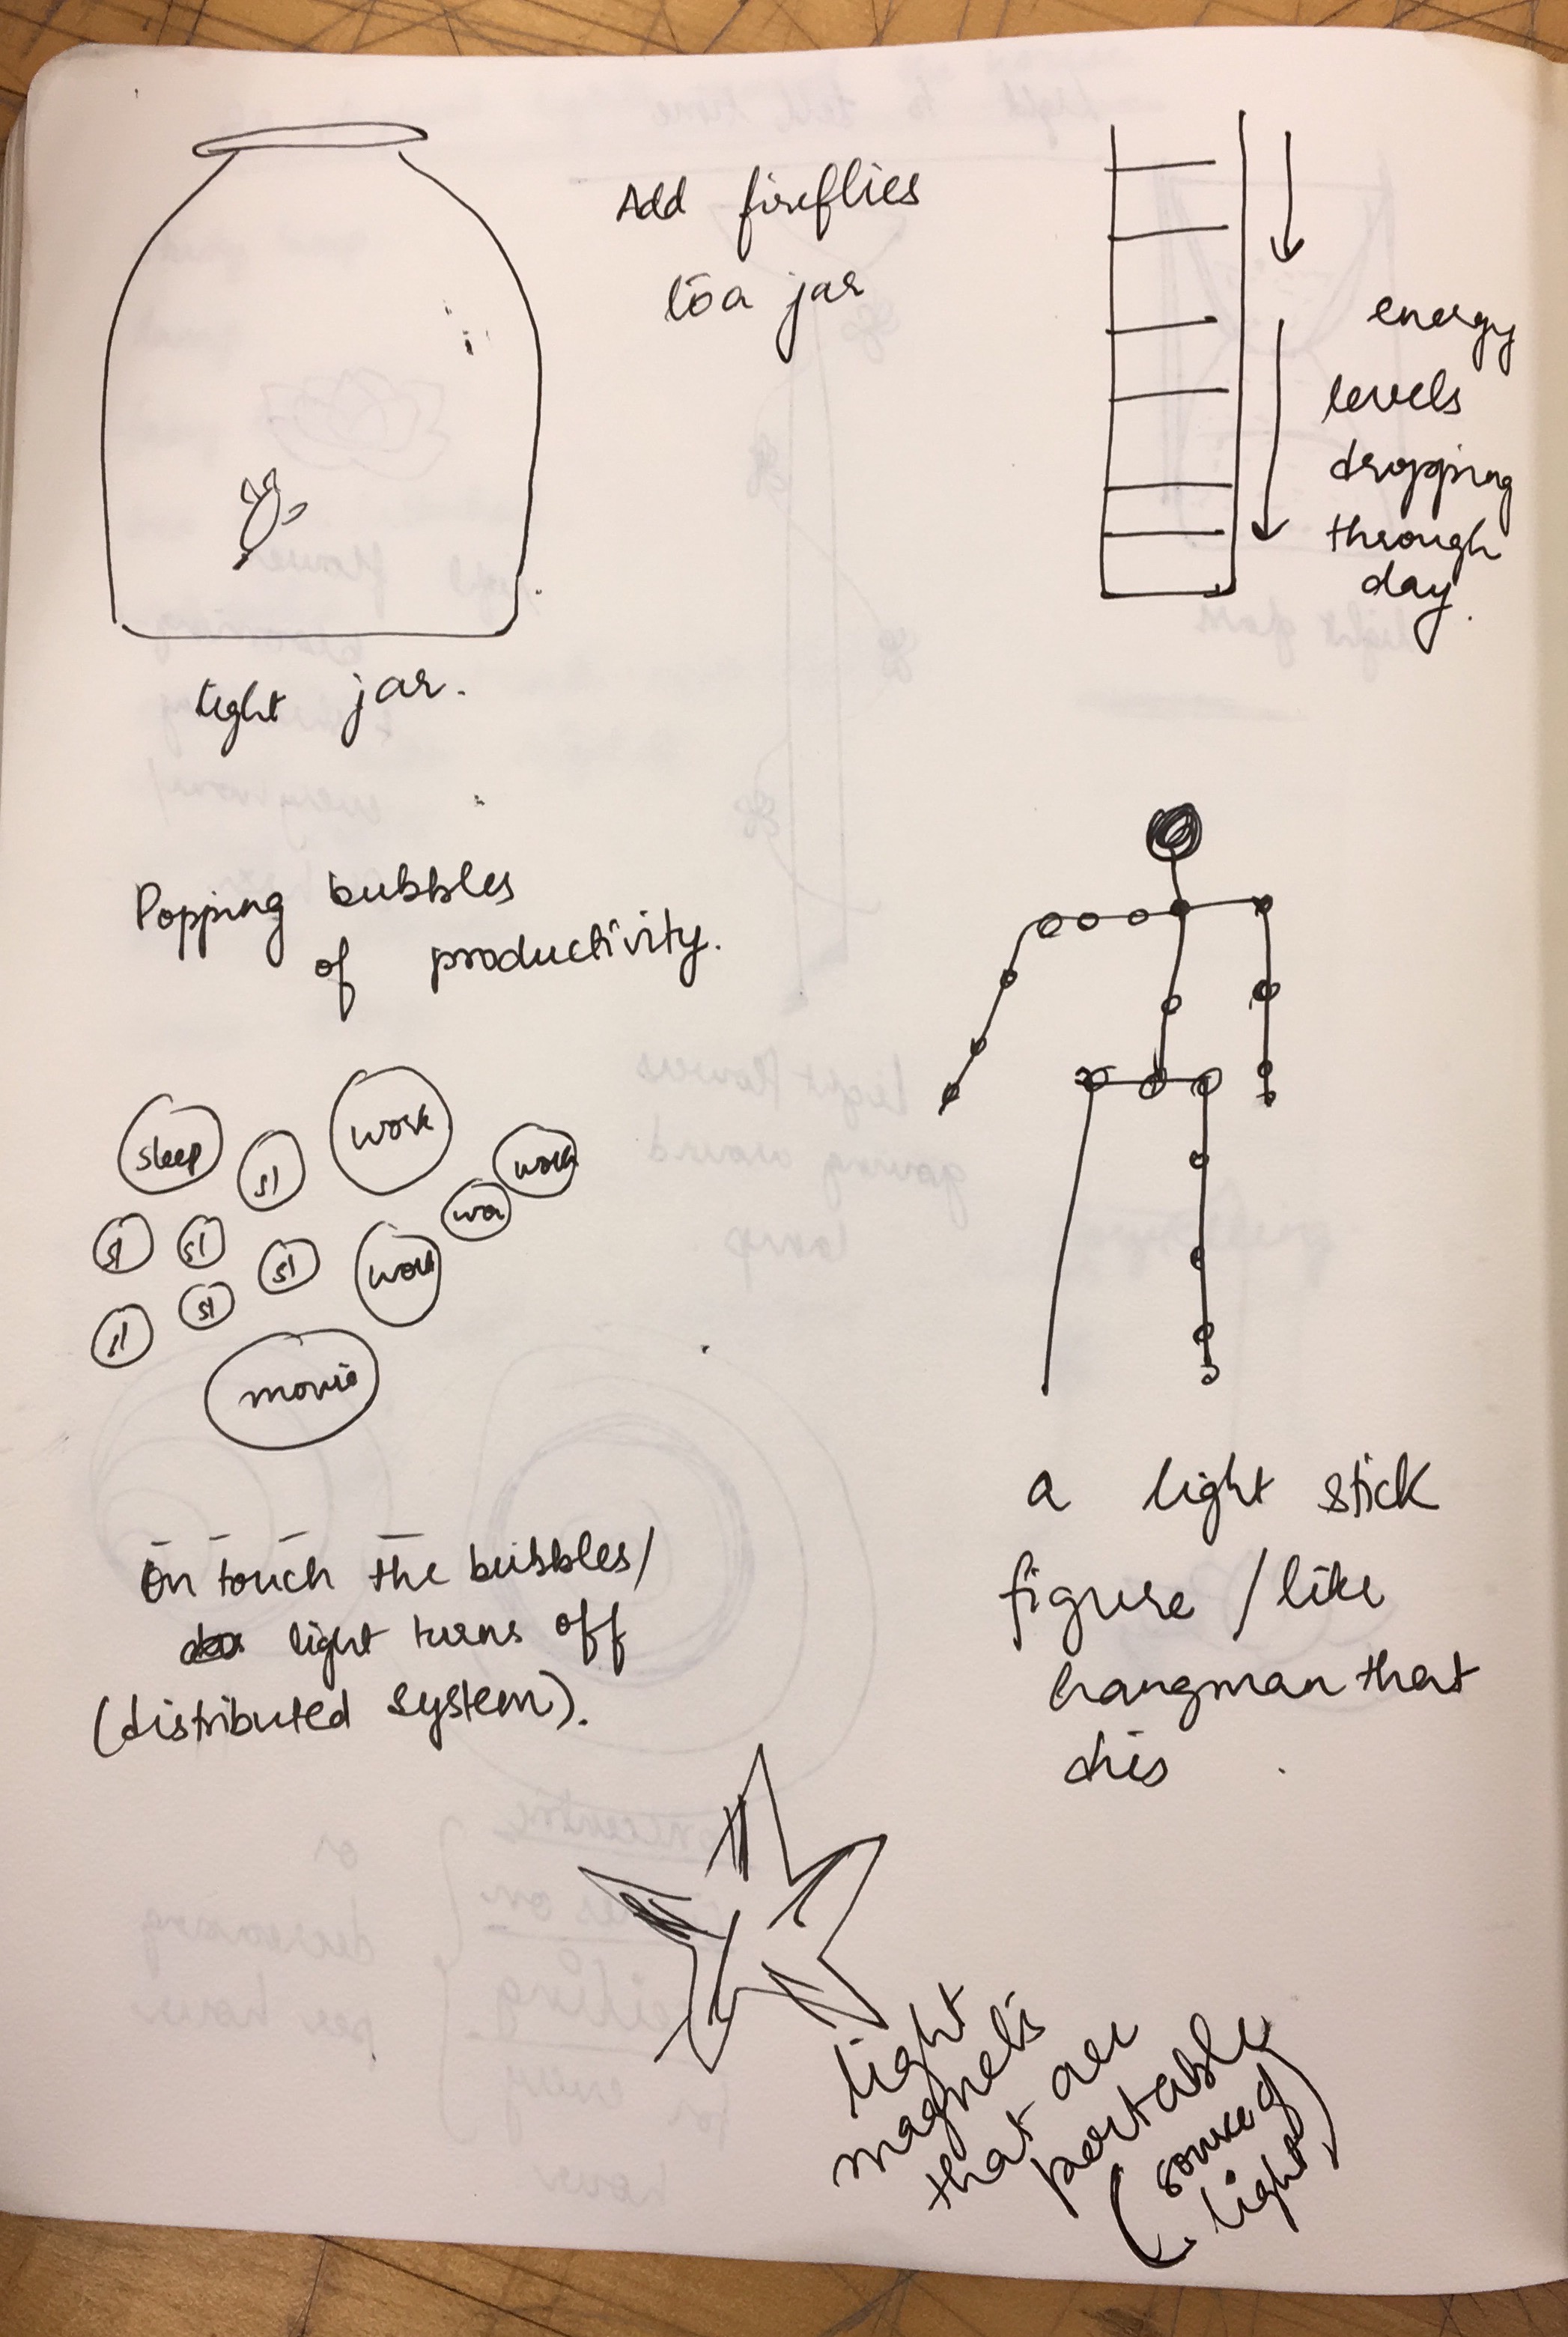 Add fireflies
to a jar
light jar.
energy
levels
dropping
through
day.
Popping bubbles
of productivity.
sleep
sl
work
work
wor
sl
sl
sl
work
sl
sl
movie
On touch the bubbles/
light turns off
(distributed system).
a light stick
figure / like
hangman that
dies
light
magnets
that are
portable
(source of
light)